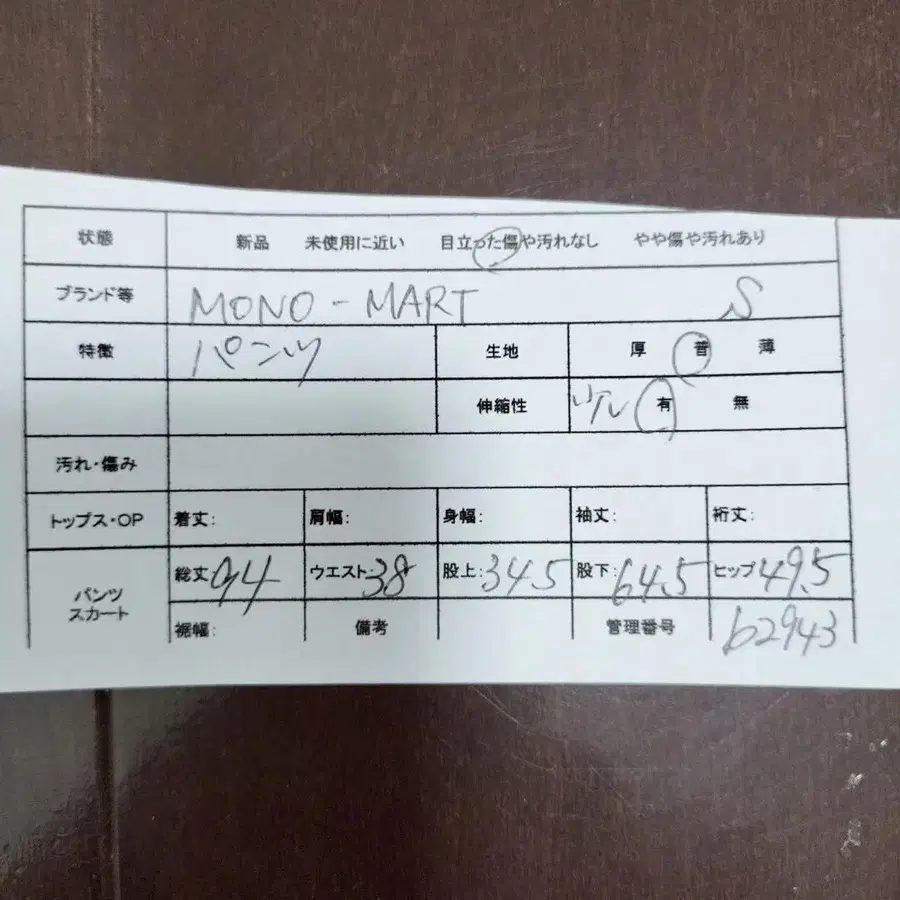 状態 新品 未使用に近い 目立った傷や汚れなし やや傷や汚れあり
ブランド等 MONO-MART S
特徴 パンツ 生地 厚 普 薄
伸縮性 有 無
汚れ・傷み
トップス・OP 着丈: 肩幅: 身幅: 袖丈: 裄丈:
パンツ スカート 総丈 94 ウエスト: 38 股上: 34.5 股下: 64.5 ヒップ 49.5
裾幅: 備考 管理番号 b2943